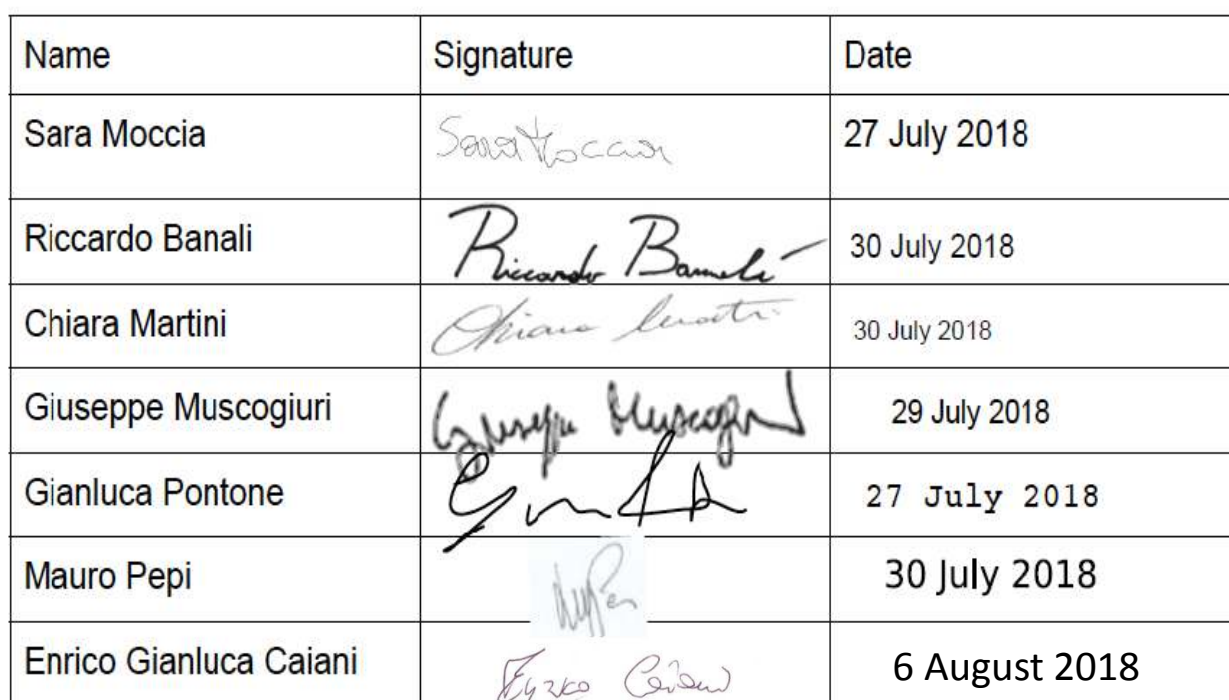 Name Signature Date
Sara Moccia Sara Moccia 27 July 2018
Riccardo Banali Riccardo Banali 30 July 2018
Chiara Martini Chiara 30 July 2018
Giuseppe Muscogiuri Giuseppe 29 July 2018
Gianluca Pontone 27 July 2018
Mauro Pepi 30 July 2018
Enrico Gianluca Caiani Enrico Caiani 6 August 2018